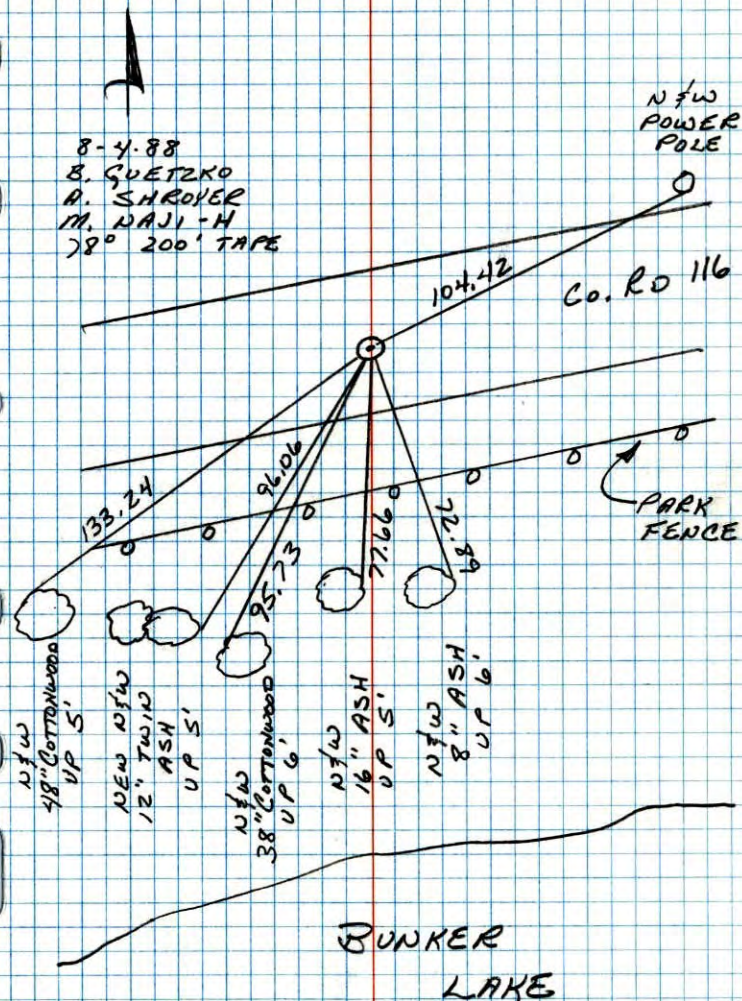 8-4-88
B. GUETZKO
A. SHROYER
M. NAJI-H
78° 200' TAPE
N & W
POWER
POLE
104.42
Co. RD 116
133.24
96.06
95.73
77.66
PARK
FENCE
N & W
48" COTTONWOOD
UP 5'
NEW N & W
12" TWIN
ASH
UP 5'
N & W
38" COTTONWOOD
UP 6'
N & W
16" ASH
UP 5'
N & W
8" ASH
UP 6'
BUNKER
LAKE